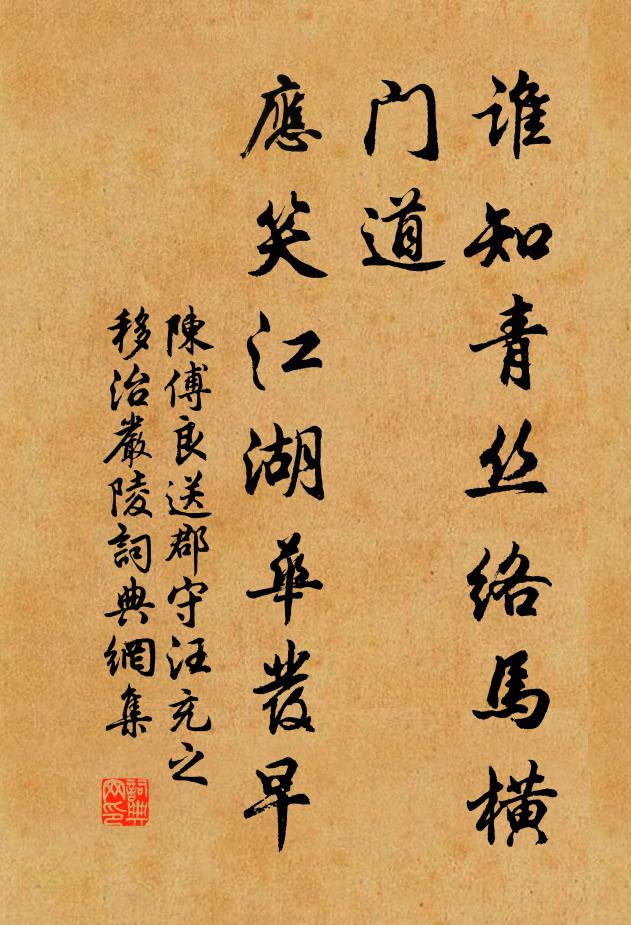 谁知青丝络馬橫
门道
應笑江湖華發早
陳傅良送郡守汪充之
移治嚴陵詞典網集
詞典
网印